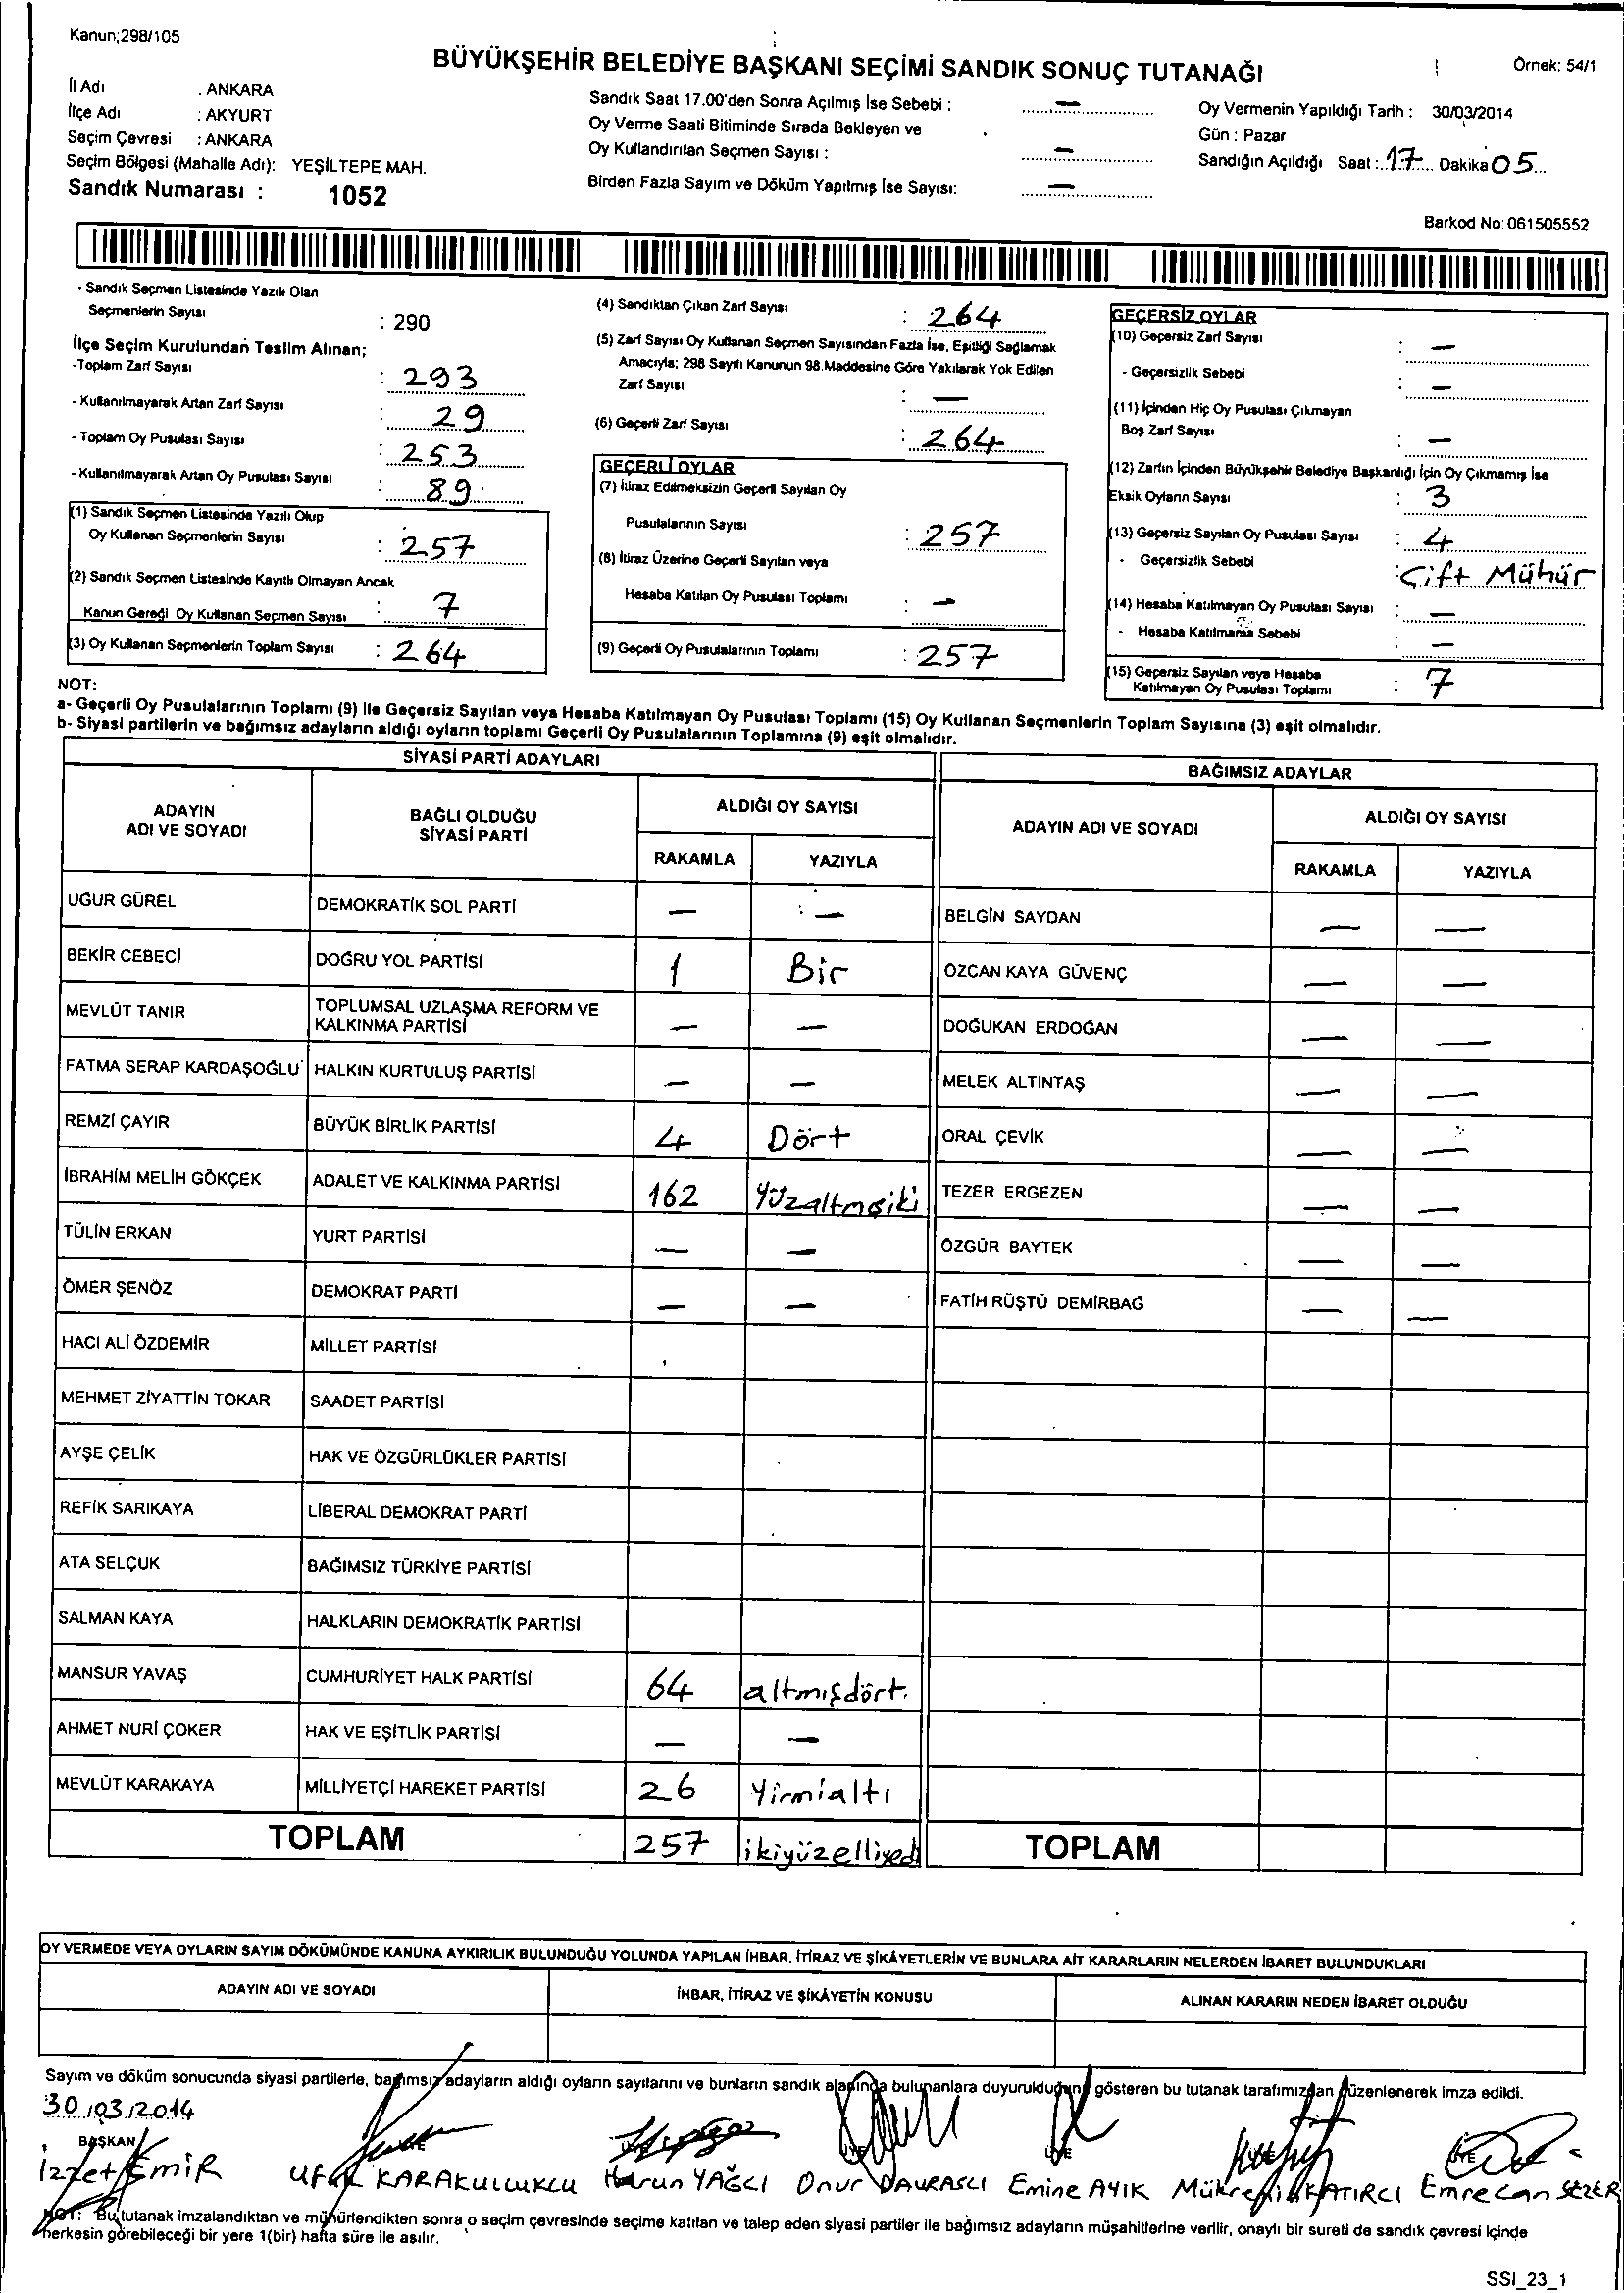 Kanun;298/105
BÜYÜKŞEHİR BELEDİYE BAŞKANI SEÇİMİ SANDIK SONUÇ TUTANAĞI
Örnek: 54/1
İl Adı : ANKARA
İlçe Adı : AKYURT
Seçim Çevresi : ANKARA
Seçim Bölgesi (Mahalle Adı): YEŞİLTEPE MAH.
Sandık Numarası : 1052
Sandık Saat 17.00'den Sonra Açılmış İse Sebebi : —
Oy Verme Saati Bitiminde Sırada Bekleyen ve
Oy Kullandırılan Seçmen Sayısı : —
Birden Fazla Sayım ve Döküm Yapılmış İse Sayısı: —
Oy Vermenin Yapıldığı Tarih : 30/03/2014
Gün : Pazar
Sandığın Açıldığı Saat : 17 Dakika 05
Barkod No: 061505552
- Sandık Seçmen Listesinde Yazılı Olan
Seçmenlerin Sayısı : 290
İlçe Seçim Kurulundan Teslim Alınan;
-Toplam Zarf Sayısı : 293
- Kullanılmayarak Artan Zarf Sayısı : 29
- Toplam Oy Pusulası Sayısı : 253
- Kullanılmayarak Artan Oy Pusulası Sayısı : 89
(1) Sandık Seçmen Listesinde Yazılı Olup
Oy Kullanan Seçmenlerin Sayısı : 257
(2) Sandık Seçmen Listesinde Kayıtlı Olmayan Ancak
Kanun Gereği Oy Kullanan Seçmen Sayısı : 7
(3) Oy Kullanan Seçmenlerin Toplam Sayısı : 264
(4) Sandıktan Çıkan Zarf Sayısı : 264
(5) Zarf Sayısı Oy Kullanan Seçmen Sayısından Fazla İse, Eşitliği Sağlamak
Amacıyla; 298 Sayılı Kanunun 98.Maddesine Göre Yakılarak Yok Edilen
Zarf Sayısı : —
(6) Geçerli Zarf Sayısı : 264
GEÇERLİ OYLAR
(7) İtiraz Edilmeksizin Geçerli Sayılan Oy
Pusulalarının Sayısı : 257
(8) İtiraz Üzerine Geçerli Sayılan veya
Hesaba Katılan Oy Pusulası Toplamı : —
(9) Geçerli Oy Pusulalarının Toplamı : 257
GEÇERSİZ OYLAR
(10) Geçersiz Zarf Sayısı : —
- Geçersizlik Sebebi : —
(11) İçinden Hiç Oy Pusulası Çıkmayan
Boş Zarf Sayısı : —
(12) Zarfın İçinden Büyükşehir Belediye Başkanlığı İçin Oy Çıkmamış İse
Eksik Oyların Sayısı : 3
(13) Geçersiz Sayılan Oy Pusulası Sayısı : 4
- Geçersizlik Sebebi : Çift Mühür
(14) Hesaba Katılmayan Oy Pusulası Sayısı : —
- Hesaba Katılmama Sebebi : —
(15) Geçersiz Sayılan veya Hesaba
Katılmayan Oy Pusulası Toplamı : 7
NOT:
a- Geçerli Oy Pusulalarının Toplamı (9) ile Geçersiz Sayılan veya Hesaba Katılmayan Oy Pusulası Toplamı (15) Oy Kullanan Seçmenlerin Toplam Sayısına (3) eşit olmalıdır.
b- Siyasi partilerin ve bağımsız adayların aldığı oyların toplamı Geçerli Oy Pusulalarının Toplamına (9) eşit olmalıdır.
SİYASİ PARTİ ADAYLARI
ADAYIN ADI VE SOYADI BAĞLI OLDUĞU SİYASİ PARTİ ALDIĞI OY SAYISI
RAKAMLA YAZIYLA
UĞUR GÜREL DEMOKRATİK SOL PARTİ — —
BEKİR CEBECİ DOĞRU YOL PARTİSİ 1 Bir
MEVLÜT TANIR TOPLUMSAL UZLAŞMA REFORM VE KALKINMA PARTİSİ — —
FATMA SERAP KARDAŞOĞLU HALKIN KURTULUŞ PARTİSİ — —
REMZİ ÇAYIR BÜYÜK BİRLİK PARTİSİ 4 Dört
İBRAHİM MELİH GÖKÇEK ADALET VE KALKINMA PARTİSİ 162 Yüzaltmışiki
TÜLİN ERKAN YURT PARTİSİ — —
ÖMER ŞENÖZ DEMOKRAT PARTİ — —
HACI ALİ ÖZDEMİR MİLLET PARTİSİ
MEHMET ZİYATTİN TOKAR SAADET PARTİSİ
AYŞE ÇELİK HAK VE ÖZGÜRLÜKLER PARTİSİ
REFİK SARIKAYA LİBERAL DEMOKRAT PARTİ
ATA SELÇUK BAĞIMSIZ TÜRKİYE PARTİSİ
SALMAN KAYA HALKLARIN DEMOKRATİK PARTİSİ
MANSUR YAVAŞ CUMHURİYET HALK PARTİSİ 64 altmışdört.
AHMET NURİ ÇOKER HAK VE EŞİTLİK PARTİSİ — —
MEVLÜT KARAKAYA MİLLİYETÇİ HAREKET PARTİSİ 26 Yirmialtı
TOPLAM 257 ikiyüzelliyedi
BAĞIMSIZ ADAYLAR
ADAYIN ADI VE SOYADI ALDIĞI OY SAYISI
RAKAMLA YAZIYLA
BELGİN SAYDAN — —
ÖZCAN KAYA GÜVENÇ — —
DOĞUKAN ERDOĞAN — —
MELEK ALTINTAŞ — —
ORAL ÇEVİK — —
TEZER ERGEZEN — —
ÖZGÜR BAYTEK — —
FATİH RÜŞTÜ DEMİRBAĞ — —
TOPLAM
OY VERMEDE VEYA OYLARIN SAYIM DÖKÜMÜNDE KANUNA AYKIRILIK BULUNDUĞU YOLUNDA YAPILAN İHBAR, İTİRAZ VE ŞİKÂYETLERİN VE BUNLARA AİT KARARLARIN NELERDEN İBARET BULUNDUKLARI
ADAYIN ADI VE SOYADI İHBAR, İTİRAZ VE ŞİKÂYETİN KONUSU ALINAN KARARIN NEDEN İBARET OLDUĞU
Sayım ve döküm sonucunda siyasi partilerle, bağımsız adayların aldığı oyların sayılarını ve bunların sandık alanında bulunanlara duyurulduğunu gösteren bu tutanak tarafımızdan düzenlenerek imza edildi.
30/03/2014
BAŞKAN ÜYE ÜYE ÜYE ÜYE ÜYE ÜYE
İzzet EMİR Ufuk KARAKULLUKLU Harun YAĞCI Onur DAVRASLI Emine AYIK Mükremin KATIRCI Emrecan SEZER
NOT: Bu tutanak imzalandıktan ve mühürlendikten sonra o seçim çevresinde seçime katılan ve talep eden siyasi partiler ile bağımsız adayların müşahitlerine verilir, onaylı bir sureti de sandık çevresi içinde
herkesin görebileceği bir yere 1(bir) hafta süre ile asılır.
SSI_23_1